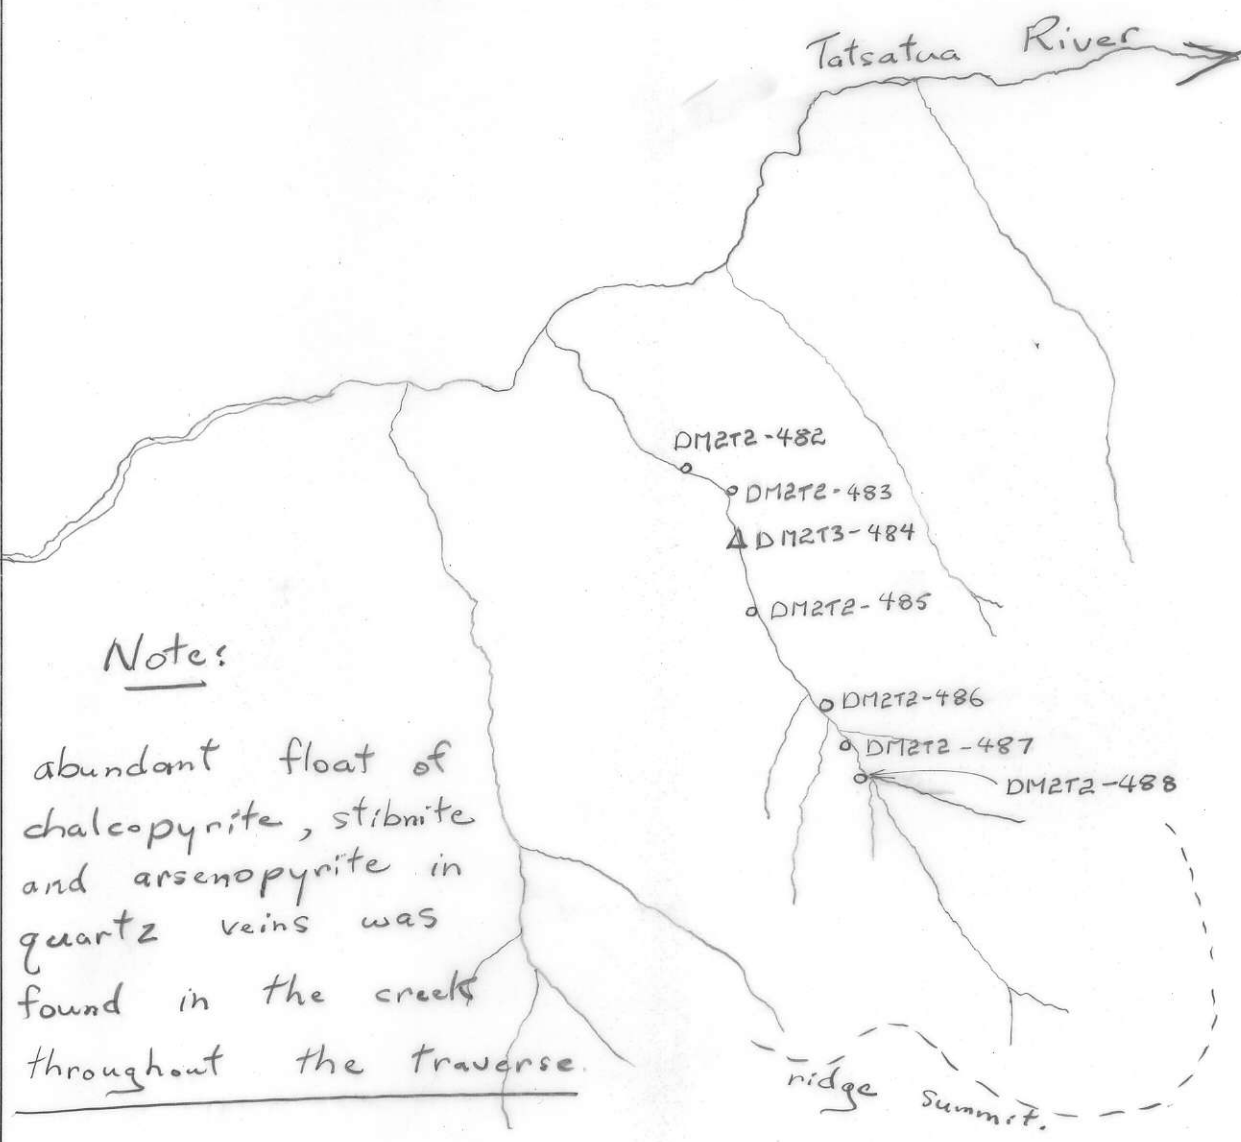 Tatsatua River
DM2T2-482
DM2T2-483
DM2T3-484
DM2T2-485
DM2T2-486
DM2T2-487
DM2T2-488
Note:
abundant float of
chalcopyrite, stibnite
and arsenopyrite in
quartz veins was
found in the creek
throughout the traverse.
ridge summit.